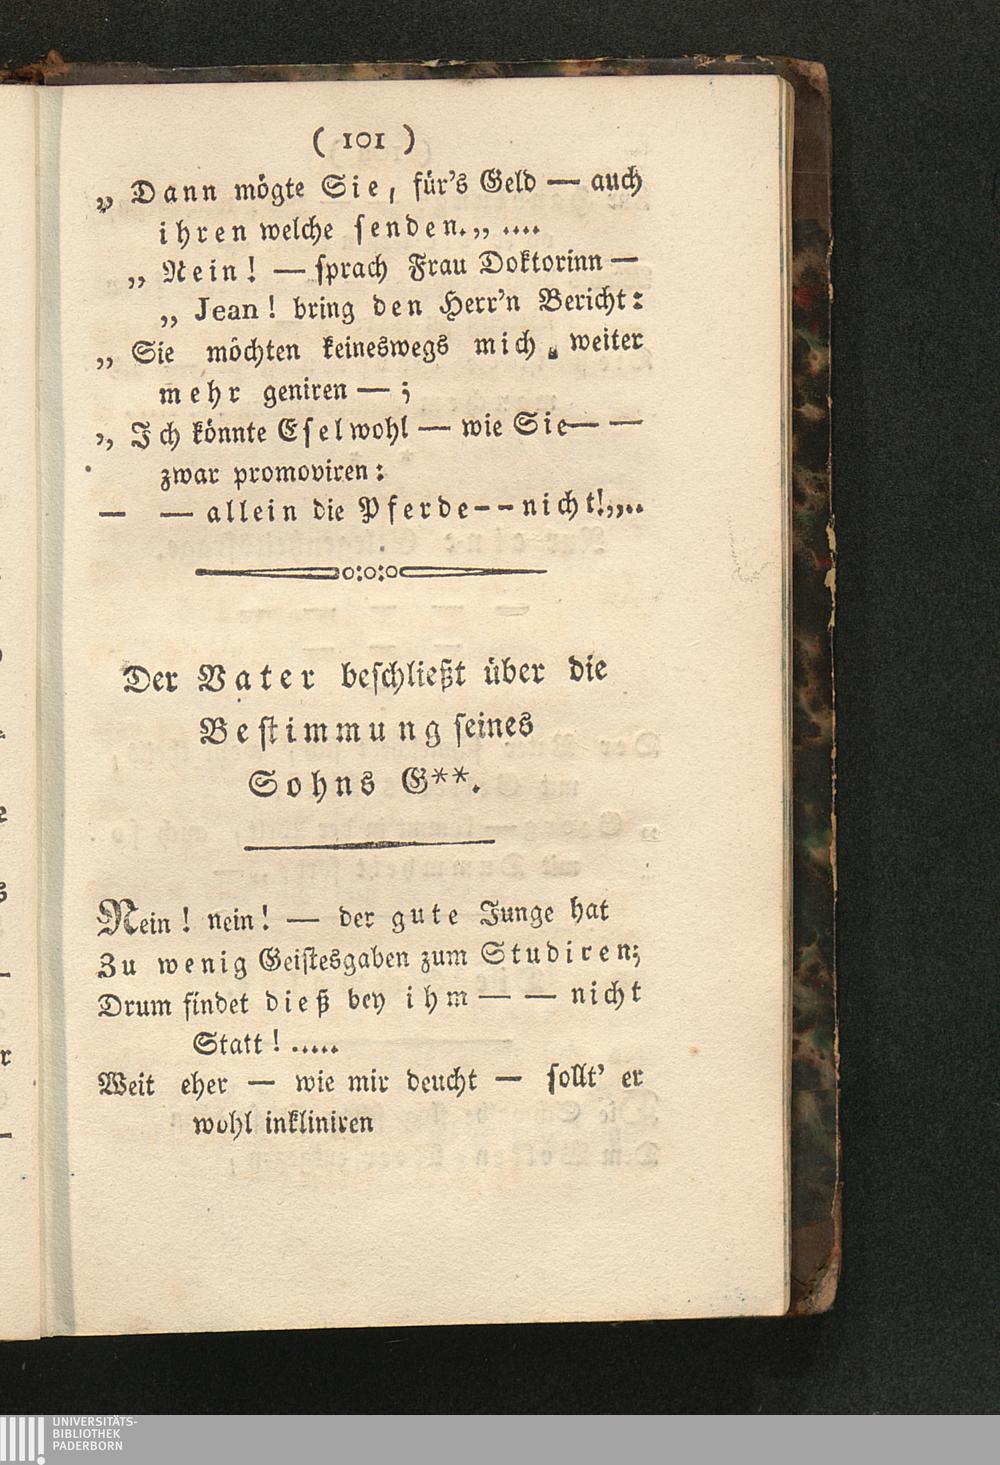 ( 101 )
„ Dann mögte Sie, für's Geld — auch
ihren welche senden.„ ....
„ Nein! — sprach Frau Doktorinn —
„ Jean! bring den Herr'n Bericht:
„ Sie möchten keineswegs mich, weiter
mehr geniren — ;
„ Ich könnte Esel wohl — wie Sie — —
zwar promoviren:
— — allein die Pferde - - nicht!„..
Der Vater beschließt über die
Bestimmung seines
Sohns G**.
Nein! nein! — der gute Junge hat
Zu wenig Geistesgaben zum Studiren;
Drum findet dieß bey ihm — — nicht
Statt! .....
Weit eher — wie mir deucht — sollt' er
wohl inkliniren
UNIVERSITÄTS-
BIBLIOTHEK
PADERBORN